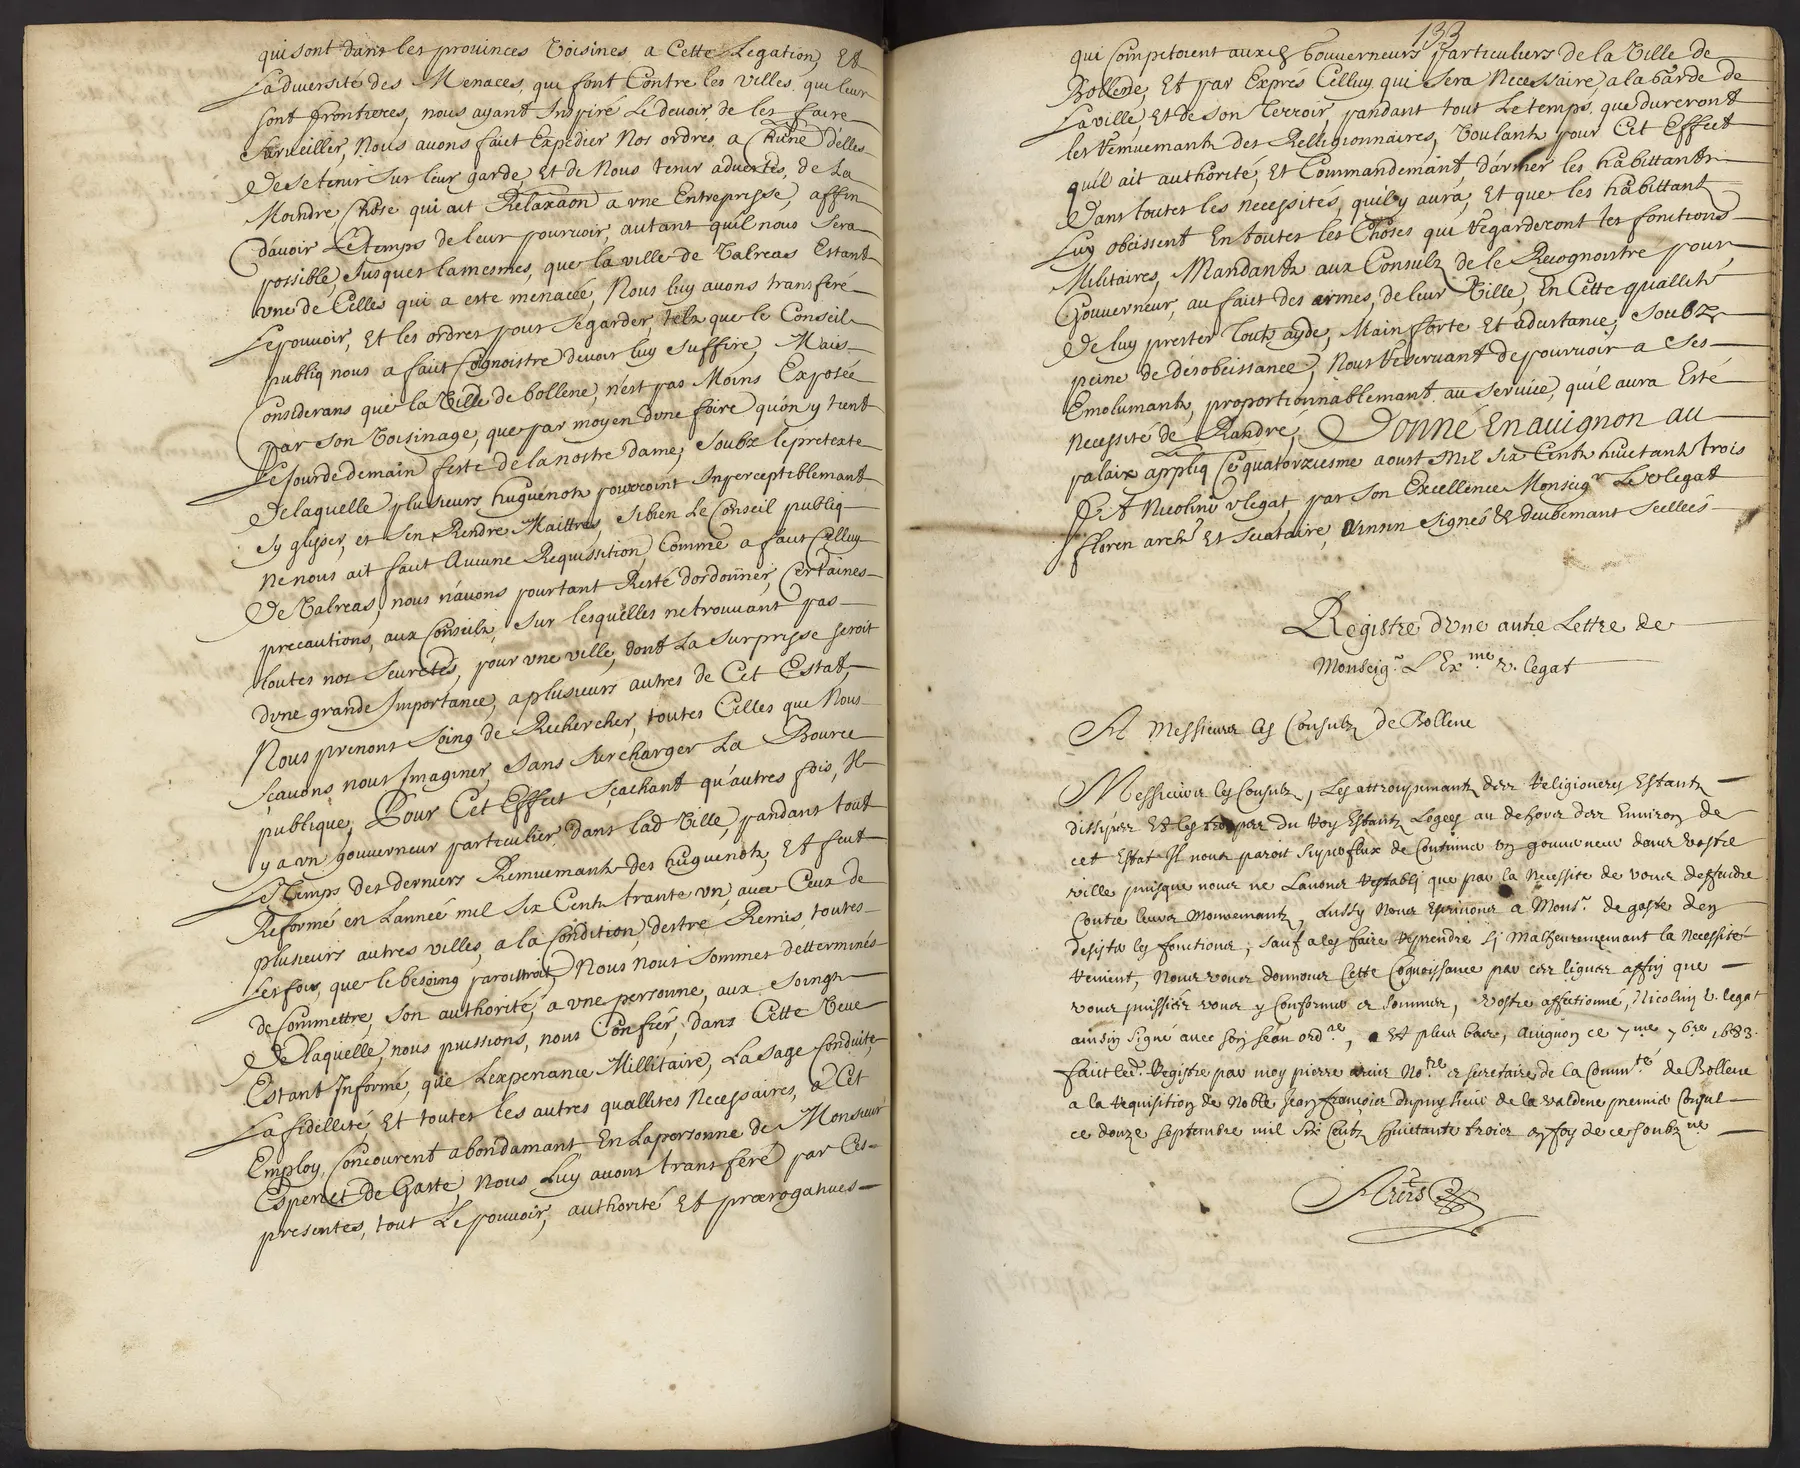 qui sont dans les prouinces Voisines a Cette Legation, Et
La diuersité des Menaces, qui font Contre les villes, qui leur
sont frontieres, nous ayant Inspiré Le deuoir, de les faire
Surueiller, Nous auons faict Expedier Nos ordres, a Chūne d'elles
De se tenir Sur leur garde, Et de Nous tenir aduertis, de La
Moindre Chose qui ait Relaxāon a vne Entreprisse, affin
d'auoir Le temps de leur pouruoir, autant qu'il nous Sera
possible, Jusques lamesmes, que la ville de Valreas Estant
vne de Celles qui a este menacée, Nous luy auons transferé
Le pouuoir, Et les ordres pour Se garder, telz que le Conseil
publiq nous a faict Cognoistre deuoir luy Suffire, Mais
Considerans que la Ville de bollene, n'est pas Moins Exposée
par Son Voisinage, que par moyen d'vne foire qu'on y tient
Le Jour de demain feste de la nostre dame, Soubz le pretexte
De laquelle plusieurs huguenotz pourroint Inperceptiblemant
Sy glisser, et S'en Rendre Maittres, Sibien Le Conseil publiq
Ne nous ait faict Aucune Requissition, Comme a faict Celluy
De Valreas, nous n'auons pourtant Resté d'ordonner, Certaines
precautions, aux Conseilz, Sur lesquelles ne trouuant pas
toutes nos Seuretés, pour vne ville, dont La Surprisse seroit
d'vne grande Importance, a plusieurs autres de Cet Estat,
Nous prenons Soing de Rechercher, toutes Celles que Nous
Sçauons nous Imaginer, Sans Surcharger La Bource
publique, Pour Cet Effect Sçachant qu'autres fois, Il
y a vn gouuerneur particulier, dans lad Ville, pandant tout
Le Temps des derniers Remuemantz des huguenotz, Et feut
Reformé en Lanneé mil Six Centz trante vn, auec Ceux de
plusieurs autres villes, a la Condition, destre Remis, toutes
Les fois, que le besoing paroistroit, Nous nous Sommes detterminés
de Commettre, Son authorité, a vne personne, aux Soingz
De laquelle, nous puissions, nous Confier, dans Cette Veue
Estant Informé, que L'experiance Millitaire, La Sage Conduite,
La fidellité, Et toutes les autres quallités Necessaires, a Cet
Employ, Concourent abondamant En La personne de Monsieur
Espenet de Gaste, Nous Luy auons transferé par Ces
presentes, tout Le pouuoir, authorité Et prærogatiues
133
qui Competoient aux Gouuerneurs particuliers de la Ville de
Bollene, Et par Expres Celluy qui Sera Necessaire, a la Garde de
La ville, Et de Son Terroir, pandant tout Le temps que dureront
les Remuemantz des Relligionnaires, Voulantz pour Cet Effect
qu'il ait authorité, Et Commandemant, d'armer les habittantz
Dans toutes les necessités, qu'il y aura, Et que les habittantz
Luy obeissent En toutes les Choses qui Regarderont les fonctions
Militaires, Mandantz aux Consulz de le Recognoistre pour
Gouuerneur, au faict des armes, de leur Ville, En Cette quallité
De luy prester Toutz ayde, Main forte Et adcistance, Soubz
peine de desobeissance, Nous Reseruant de pouruoir a Ses
Emolumantz, proportionnablemant au Seruice, qu'il aura Esté
Necessité de Randre, Donné En auignon au
palaix appliq Ce quatorziesme aoust Mil Six Centz huictantz trois
A Nicolini vlegat, par Son Excellence Monseigr Le vlegat
floren archr Et Secretaire, Ainsin Signés & deubemant Scellées
Registre d'vne autre Lettre de
Monseigr L'Exme v. legat
A Messieurs les Consulz de Bollene
Messieurs les Consulz, Les attroupemantz des Religioneres Estantz
dissipés Et les troupes du Roy Estantz Logées au dehors des Enuirons de
cet Estat Il nous paroit Supperflux de Continuer vn gouuerneur dans vostre
ville puisque nous ne L'auons restabli que par la Necessite de vous deffendre
Contre leurs Mouuemantz, Aussy Nous Escriuons a Monsr. de gaste den
desister les fonctions, sauf a les faire reprendre si Malheureuzemant la Necessité
reuient, Nous vous donnons Cette Cognoissance par ces lignes affin que
vous puissiés vous y Conformer et Sommes, vostre affectionné, Nicolini v. legat
ainsin Signé auec son sēau ordre, Et plus bas, Auignon ce 7me 7bre 1683.
faict led. Registre par moy pierre Nore et secretaire de la Commté de Bollene
a la requisition de Noble Jean françois dupuy sieur de la valdene premier Consul
ce douze septembre mil six Centz huictante trois en foy de ce soubzne